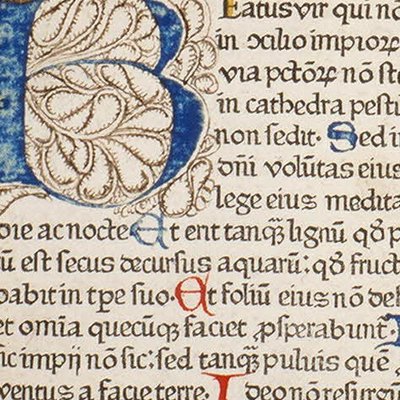 Beatus vir qui nõ
in ɔcilio impioꝝ
via pctõꝝ nõ ste
in cathedra pesti
non sedit· Sed i
dñi volũtas eius
lege eius medita
die ac nocte Et erit tanqꝫ lignũ qđ p
ũ est secus decursus aquarũ: qđ fruct
dabit in tꝑe suo· Et foliũ eius nõ de
et om̃ia quecũqꝫ faciet ꝓsperabunt·
sic impij nõ sic: sed tanqꝫ puluis quẽ
ventus a facie terre· Ideo nõ resurgũ